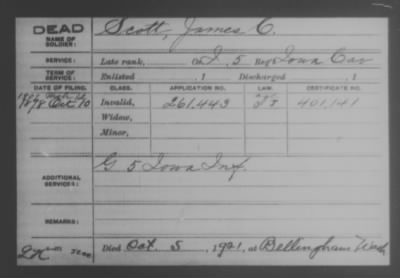 DEAD
NAME OF SOLDIER:
Scott, James C.
SERVICE:
Late rank, Co. I, 5 Reg't Iowa Cav
TERM OF SERVICE:
Enlisted , 1 Discharged , 1
DATE OF FILING. CLASS. APPLICATION NO. LAW. CERTIFICATE NO.
1878 Oct. 10 Invalid, 261,443 401,141
Widow,
Minor,
ADDITIONAL SERVICES:
G 5 Iowa Inf.
REMARKS:
Died Oct. 5, 1921, at Bellingham Wash